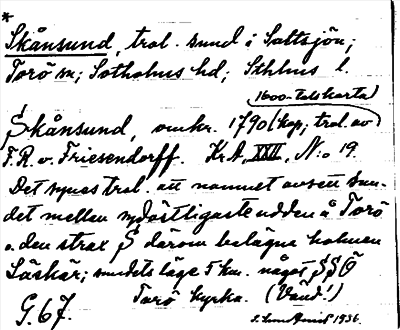 *
Skånsund, trol. sund i Saltsjön;
Torö sn; Sotholms hd; Sthlms l.
1600-talskarta
Skånsund, omkr. 1790 (kop; trol. av
F.R. v. Friesendorff. Kr.A, XXII, N:o 19.
Det synes trol. att namnet avsett sun-
det mellan sydöstligaste udden å Torö
o. den strax S därom belägna holmen
Läskär; sundets läge 5 km. något SSÖ
Torö kyrka. (Vänd!)
G. 67. 1936.